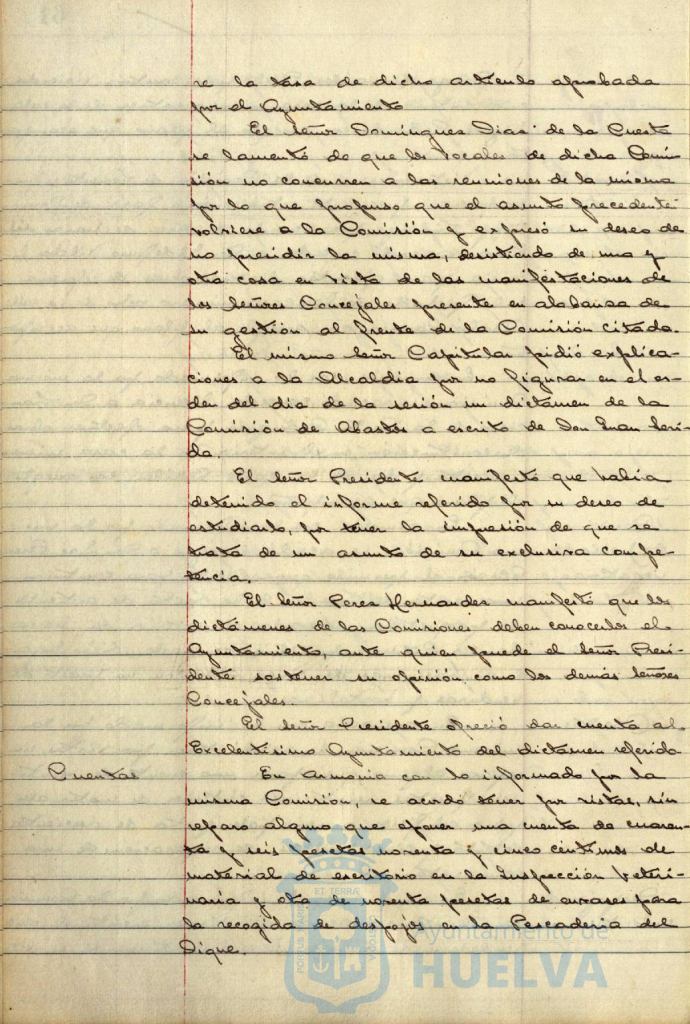 re la tasa de dicho articulo aprobada
por el Ayuntamiento
El señor Dominguez Diaz de la Cuesta
se lamentó de que los Vocales de dicha Comi-
sión no concurren a las reuniones de la misma
por lo que propuso que el asunto precedente
volviese a la Comisión y expresó su deseo de
no presidir la misma, desistiendo de una y
otra cosa en vista de las manifestaciones de
los Señores Concejales presente en alabanza de
su gestión al frente de la Comisión citada.
El mismo Señor Capitular pidió explica-
ciones a la Alcaldia por no figurar en el or-
den del dia de la sesión un dictamen de la
Comisión de Abastos a escrito de Don Juan
da.
El Señor Presidente manifestó que habia
detenido el informe referido por su deseo de
estudiarlo, por tener la impresión de que se
trata de un asunto de su exclusiva compe-
tencia.
El Señor Perez Hernandez manifestó que los
dictámenes de las Comisiones deben conocerlos el
Ayuntamiento, ante quien puede el Señor Presi-
dente sostener su opinión como los demás Señores
Concejales.
El Señor Presidente ofreció dar cuenta al
Excelentisimo Ayuntamiento del dictamen referido
Cuentas
En armonia con lo informado por la
misma Comisión, se acordó tener por vistas, sin
reparo alguno que oponer una cuenta de cuaren-
ta y seis pesetas noventa y cinco centimos de
material de escritorio en la Inspección Veteri-
naria y otra de noventa pesetas de envases para
la recogida de despojos en la Pescaderia del
Dique.
Ayuntamiento de
HUELVA